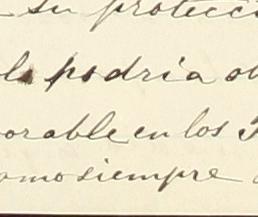 su protecci
podría ob
orable en los
omo siempre